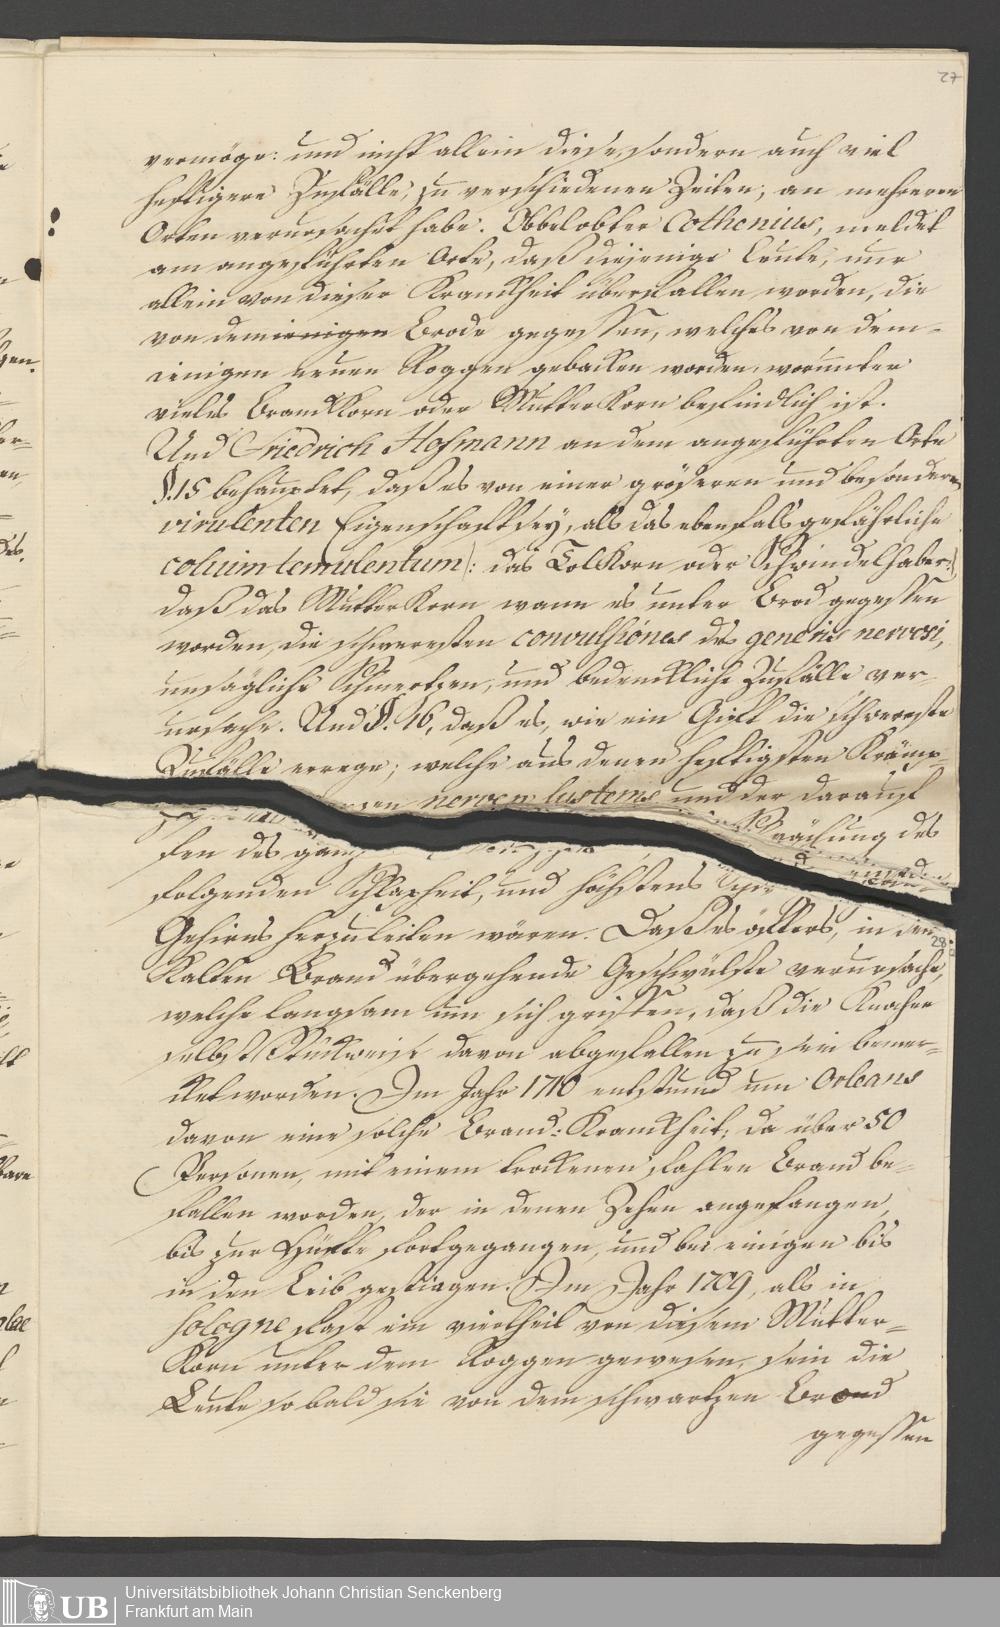 27
vermöge: und nicht allein diese, sondern auch viel
hefftigere Zufälle, zu verschiedenen Zeiten, an mehreren
Orten verursachet habe. Obbelobter Cothenius, meldet
am angeführten Orte, daß diejenige Leute, nur
allein von dieser Kranckheit überfallen worden, die
von demienigen Brode gegessen, welches von dem-
ienigen neuen Roggen gebacken worden, worunter
vieles BrandKorn oder MutterKorn befindlich ist.
Und Friedrich Hofmann an dem angeführten Orte
§.15 behauptet, daß es von einer größeren und besonderen
virulenten Eigenschafft sey, als das ebenfals gefährliche
loliumtemulentum (: das TolKorn oder Schwindelhaber:)
daß das MutterKorn wann es unter Brod gegessen
worden, die schweresten convulsiones des generis nervosi,
unsägliche Schmertzen, und bedenckliche Zufälle ver-
ursache. Und §. 16, daß es, wie ein Gifft die schwereste
Zufälle errege; welche aus denen hefftigsten Krämp-
nerven systems und der darauf
fen des gantz
folgenden Schlapheit, und höchstens Schwächung des
Gehirns herzuleiten wären. Daß es öffters, in den
28
Kalten Brand übergehende Geschwülste verursache,
welche langsam um sich griffen, daß die Knochen
selbst Stückweise davon abgefallen zu sein bemer-
ket worden. Im Jahr 1710 entstund um Orleans
davon eine solche Brand-Kranckheit, da über 50
Personen, mit einem trockenen kalten Brand be-
fallen worden, der in denen Zehen angefangen,
bis zur Hüffte fortgegangen, und bei einigen bis
in den Leib gestiegen. Im Jahr 1709, als in
Sologne fast ein viertheil von diesem Mutter-
Korn unter dem Roggen gewesen, sein die
Leute so bald sie von dem schwartzen Brod
gegessen
UB
Universitätsbibliothek Johann Christian Senckenberg
Frankfurt am Main